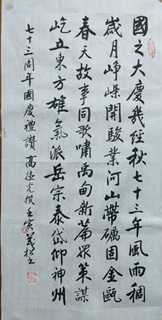 國之大慶幾經秋七十三年風雨稠
歲月崢嶸開駿業河山帶礪固金甌
春天故事同歌嘯禹甸新篇眾策謀
屹立東方雄氣派岳宗泰岱仰神州
七十三周年國慶禮讚 高 光撰 壬寅